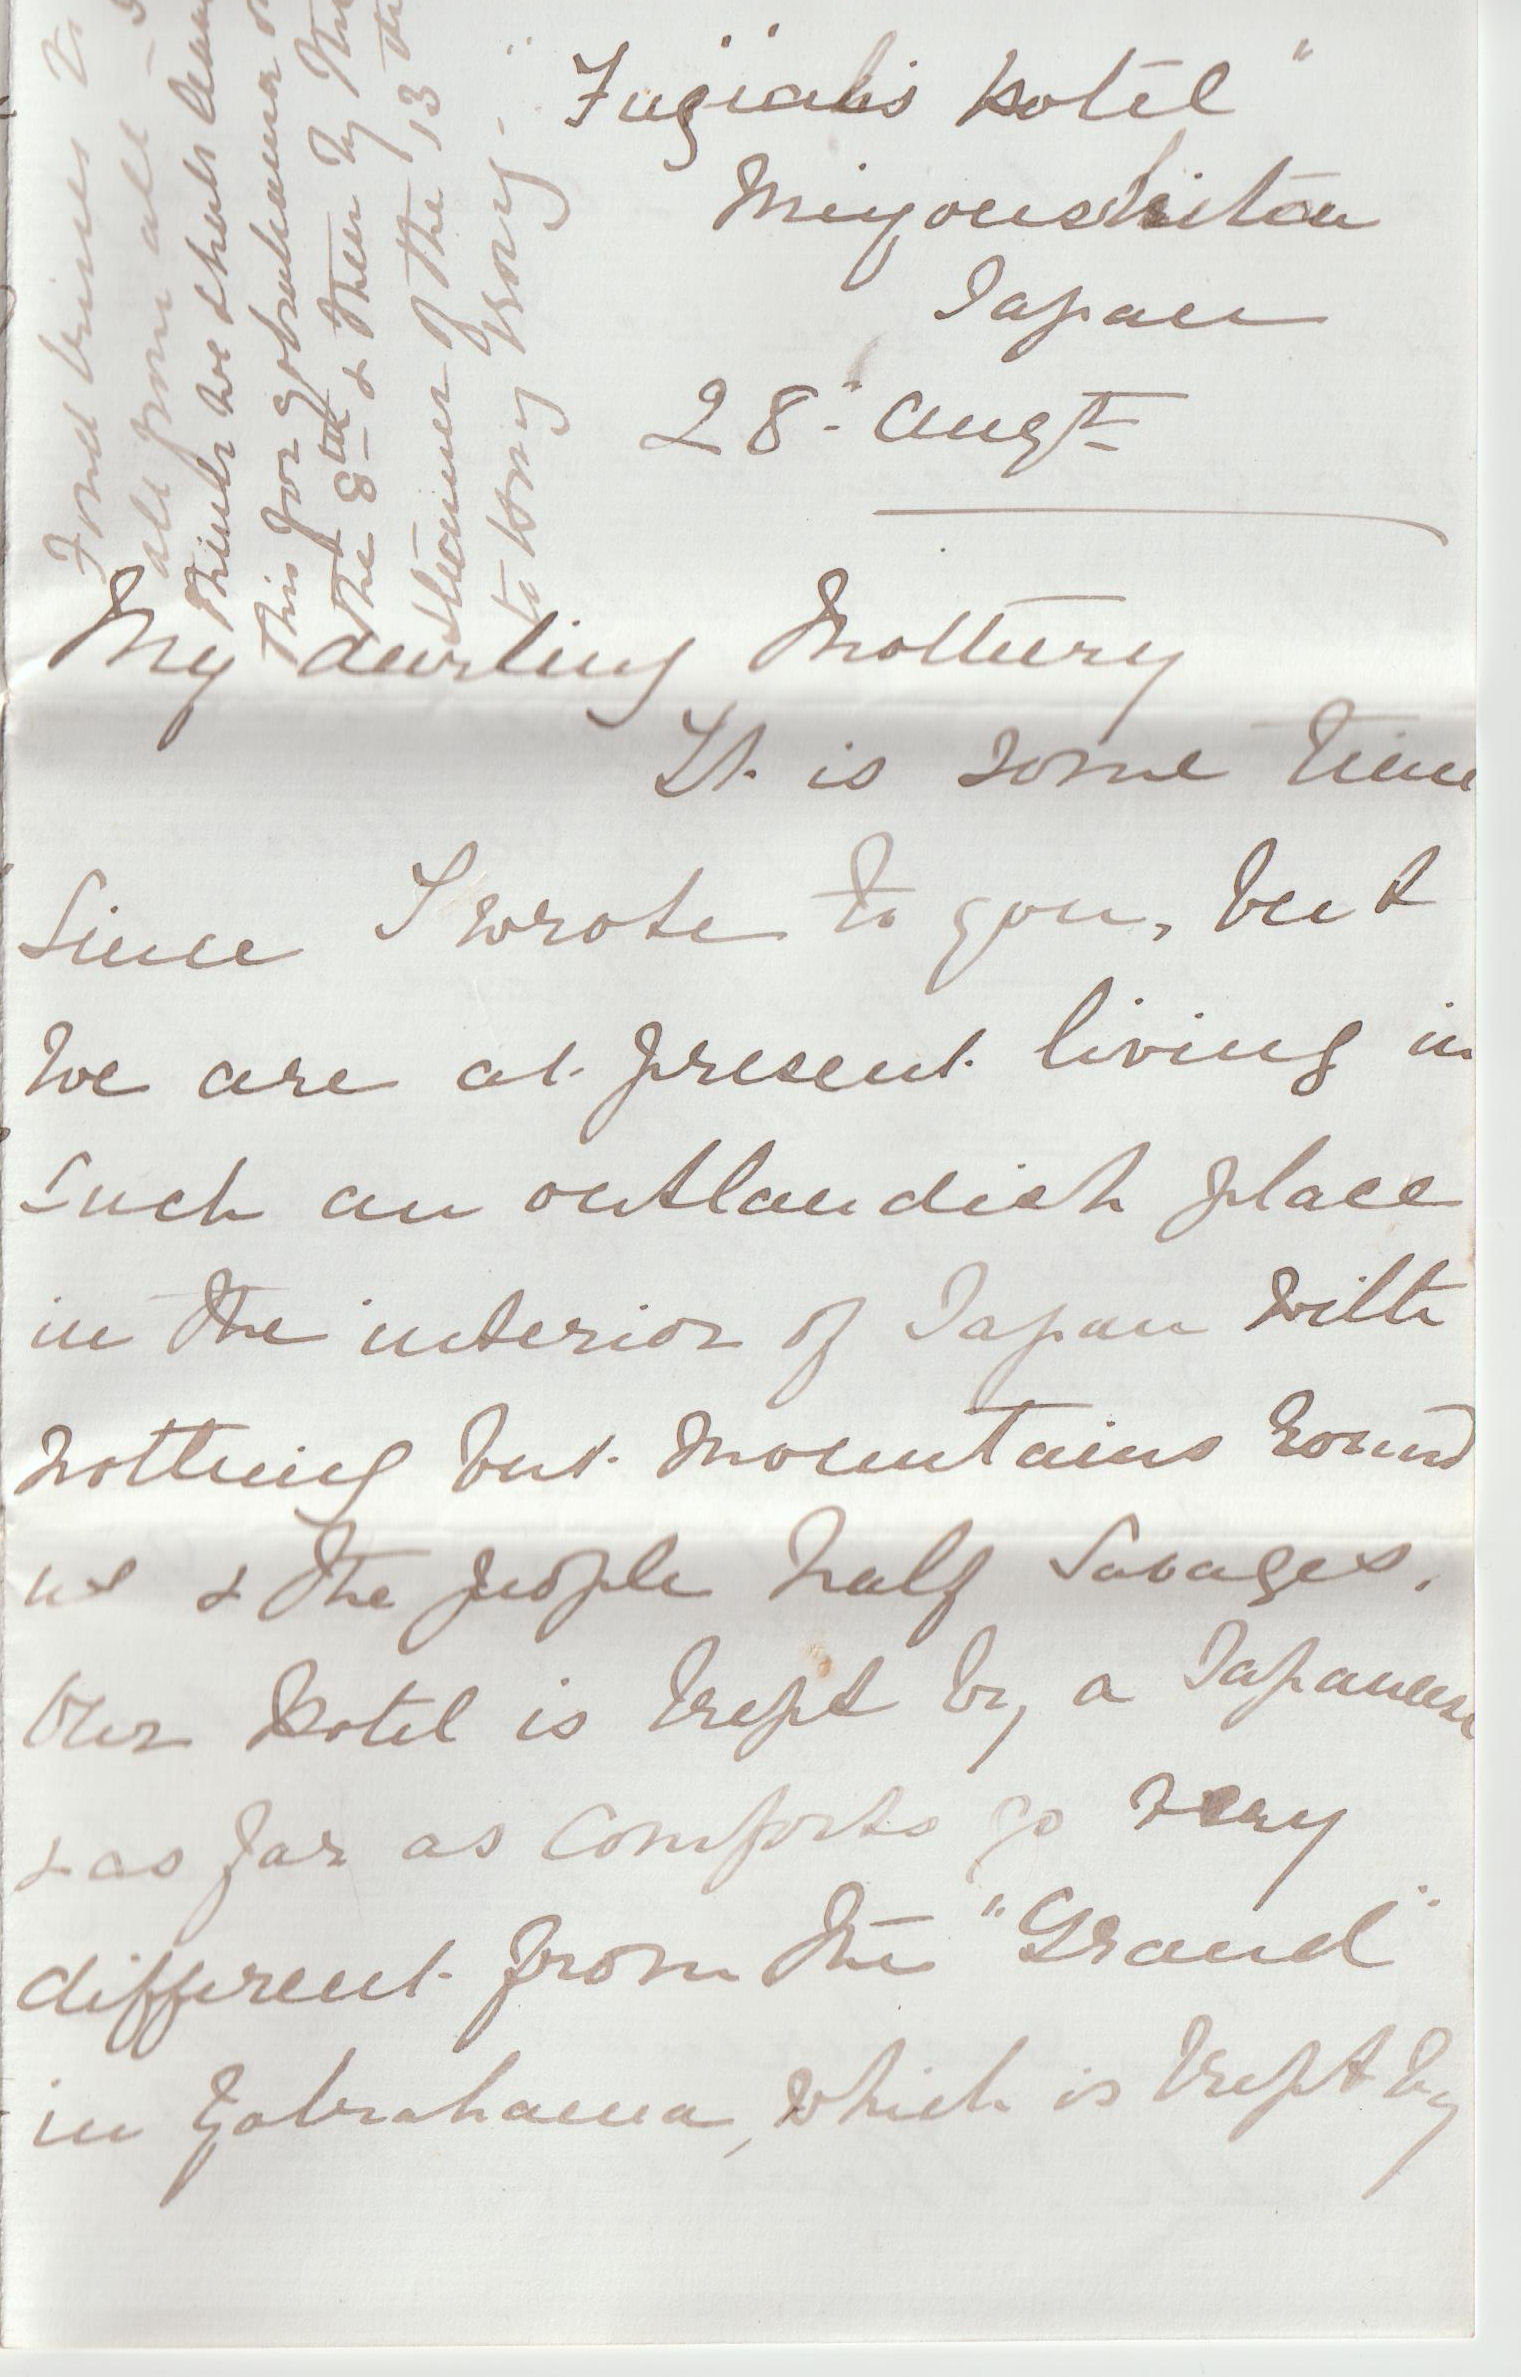 "Fugialis Hotel"
Miyonshita
Japan
28. Augt
My darling Mothery
It is some time
since I wrote to you, but
we are at present living in
such an outlandish place
in the interior of Japan with
nothing but mountains round
us & the people half savages.
Our Hotel is kept by a Japanese
& as far as comforts go very
different from the "Grand"
in Yokohama, which is kept by
Fond kisses to
all from all
think we shall leave
this for Yokohama on
the 8th & then by the
steamer of the 13th
to Hong Kong.